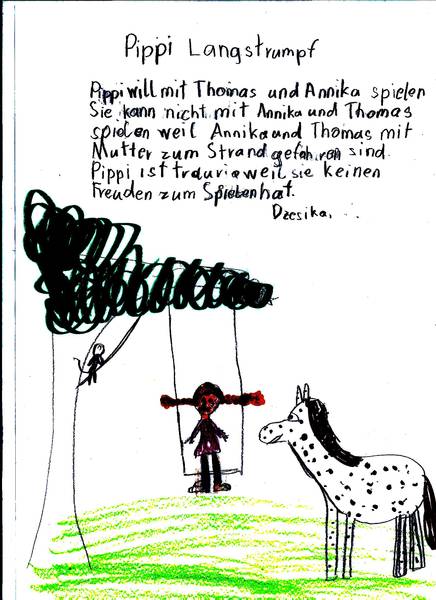 Pippi Langstrumpf
Pippi will mit Thomas und Annika spielen
Sie kann nicht mit Annika und Thomas
spielen weil Annika und Thomas mit
Mutter zum Strand gefahren sind.
Pippi ist traurig weil sie keinen
Freuden zum Spielen hat.
Dzesika.